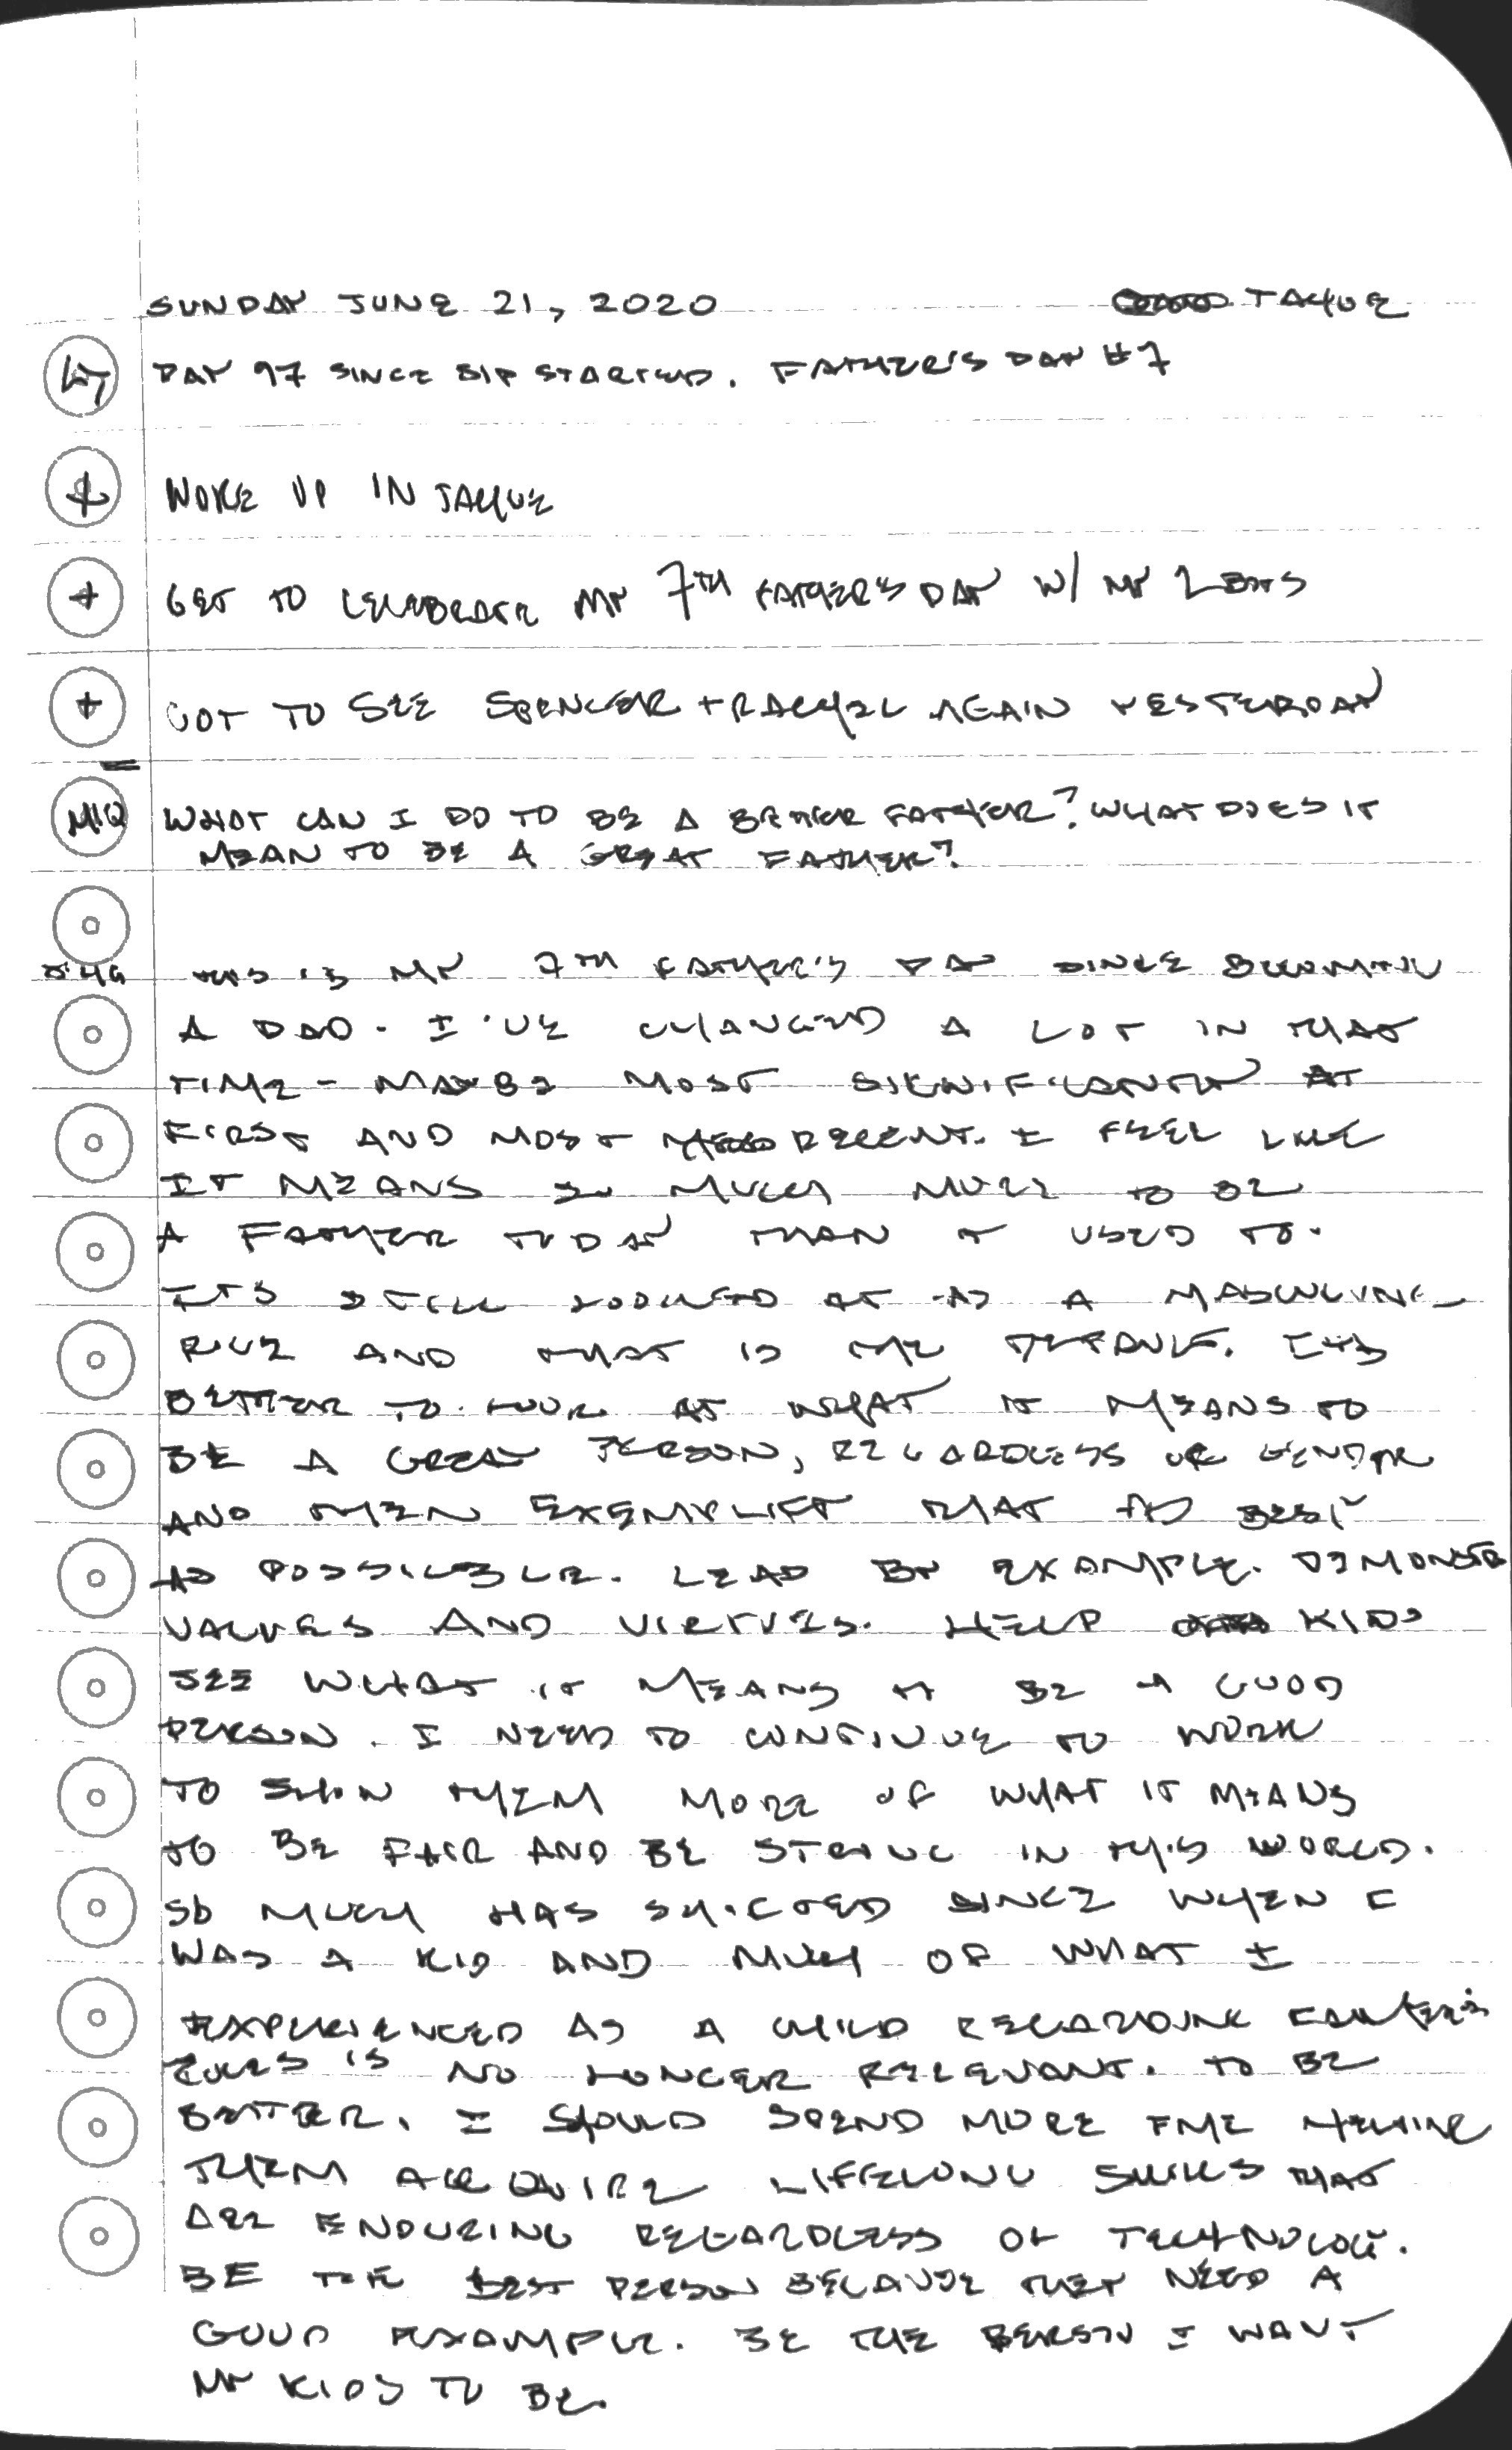 SUNDAY JUNE 21, 2020 TAHOE
DAY 97 SINCE SIP STARTED. FATHER'S DAY #7
WOKE UP IN TAHOE
GET TO CELEBRATE MY 7TH FATHER'S DAY W/ MY 2 BOYS
GOT TO SEE SPENCER + RACHEL AGAIN YESTERDAY
MIQ WHAT CAN I DO TO BE A BETTER FATHER? WHAT DOES IT
MEAN TO BE A GREAT FATHER?
THIS IS MY 7TH FATHER'S DAY SINCE BECOMING
A DAD. I'VE CHANGED A LOT IN THAT
TIME - MAYBE MOST SIGNIFICANTLY AT
FIRST AND MOST RECENT. I FEEL LIKE
IT MEANS SO MUCH MORE TO BE
A FATHER TODAY THAN IT USED TO.
IT'S STILL LOOKED AT AS A MASCULINE
ROLE AND THAT IS THE DEFAULT. IT'S
BETTER TO LOOK AT WHAT IT MEANS TO
BE A GREAT PERSON, REGARDLESS OF GENDER
AND THEN EXEMPLIFY THAT AS BEST
AS POSSIBLE. LEAD BY EXAMPLE. DEMONSTR
VALUES AND VIRTUES. HELP KIDS
SEE WHAT IT MEANS TO BE A GOOD
PERSON. I NEED TO CONTINUE TO WORK
TO SHOW THEM MORE OF WHAT IT MEANS
TO BE FAIR AND BE STRONG IN THIS WORLD.
SO MUCH HAS SHIFTED SINCE WHEN I
WAS A KID AND MUCH OF WHAT I
EXPERIENCED AS A CHILD REGARDING FATHER'S
ROLES IS NO LONGER RELEVANT. TO BE
BETTER, I SHOULD SPEND MORE TIME HELPING
THEM ACQUIRE LIFELONG SKILLS THAT
ARE ENDURING REGARDLESS OF TECHNOLOGY.
BE THE BEST PERSON BECAUSE THEY NEED A
GOOD EXAMPLE. BE THE PERSON I WANT
MY KIDS TO BE.